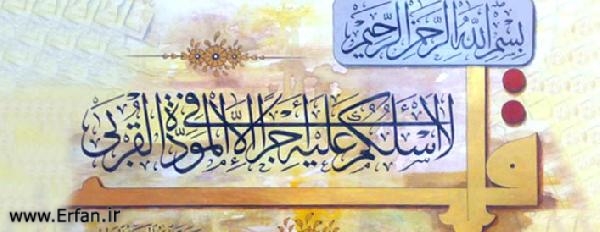 بسم الله الرحمن الرحيم
قل
لا أسئلكم عليه أجرا إلا المودة في القربى
www.Erfan.ir